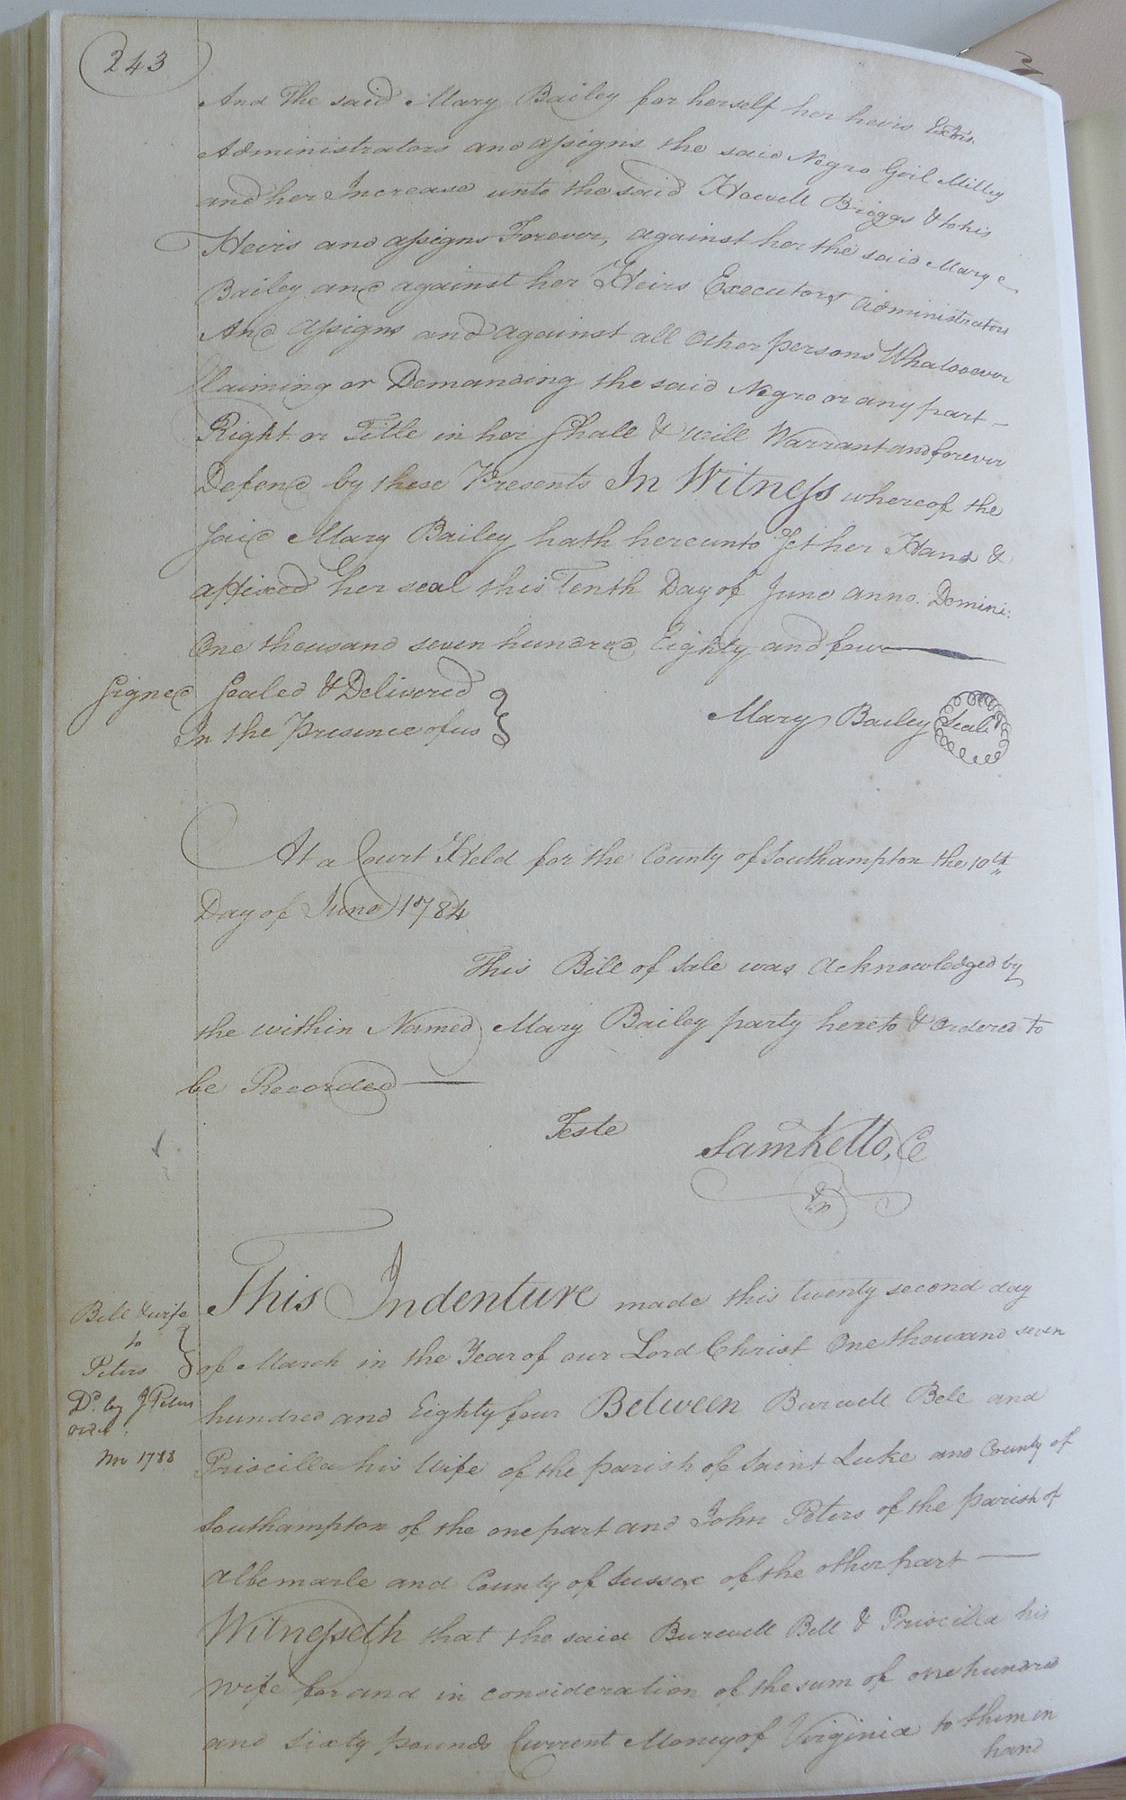 243
And The said Mary Bailey for herself her heirs Exōrs.
Administrators and assigns the said Negro Goil Milley
and her Increase unto the said Howell Briggs & to his
Heirs and assigns Forever, against her the said Mary
Bailey and against her Heirs Executors Administrators
And Assigns and against all other persons Whatsoever
Claiming or Demanding the said Negro or any part
Right or Title in her Shall & will Warrant and forever
Defend by these Presents In Witness whereof the
said Mary Bailey hath hereunto Set her Hand &
affixed her seal this Tenth Day of June anno. Domini:
One thousand seven hundred Eighty and four
Signed Sealed & Delivered
In the Presence of us
Mary Bailey Seal
At a Court Held for the County of Southampton the 10th
Day of June 1784
This Bill of Sale was Acknowledged by
the within Named Mary Bailey party hereto & Ordered to
be Recorded
Teste
Sam Kello, C
Ex
Bell & wife
to
Peters
Dd. by J Peters
ord.
1788
This Indenture made this twenty second day
of March in the Year of our Lord Christ One thousand seven
hundred and Eighty four Between Burwell Bell and
Priscilla his Wife of the parish of Saint Luke and County of
Southampton of the one part and John Peters of the parish of
Albemarle and County of Sussex of the other part
Witnesseth that the said Burwell Bell & Priscilla his
wife for and in consideration of the sum of one hundred
and sixty pounds Current Money of Virginia to them in
hand